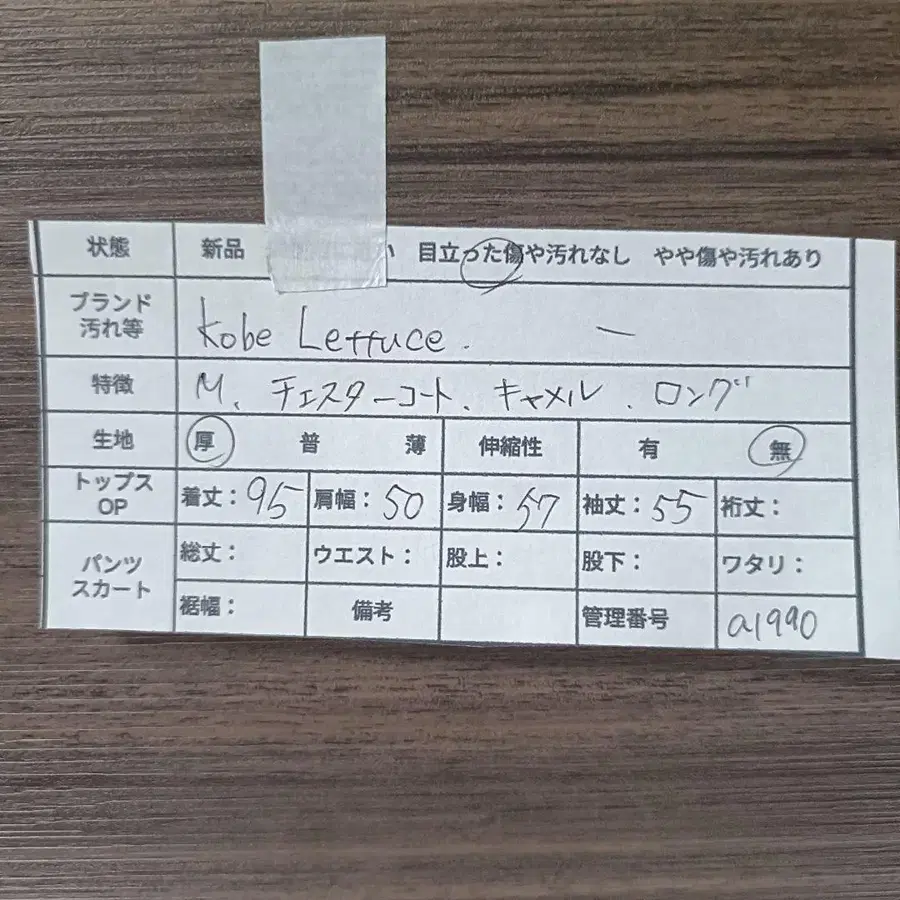 状態 新品 い 目立った傷や汚れなし やや傷や汚れあり
ブランド
汚れ等 Kobe Lettuce. ー
特徴 M、チェスターコート、キャメル、ロング
生地 厚 普 薄 伸縮性 有 無
トップス
OP 着丈:95 肩幅:50 身幅:57 袖丈:55 裄丈:
パンツ
スカート 総丈: ウエスト: 股上: 股下: ワタリ:
裾幅: 備考 管理番号 a1990